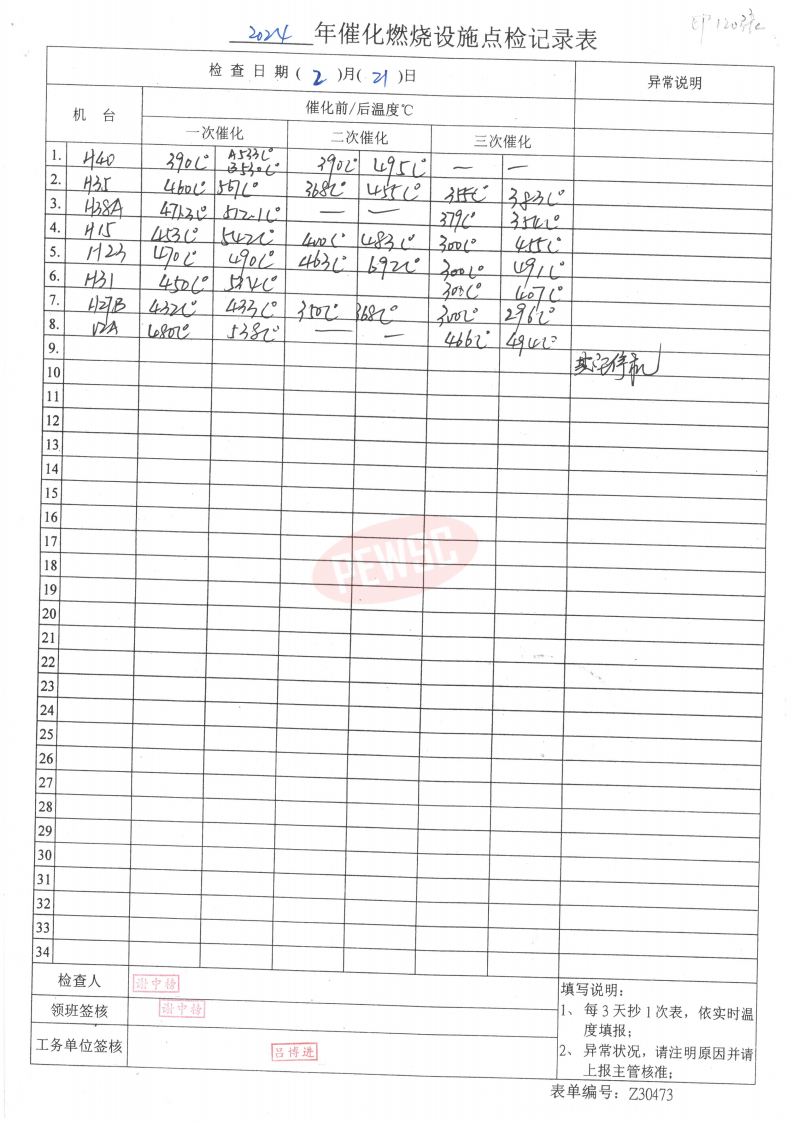 2024 年催化燃烧设施点检记录表
检 查 日 期 ( 2 )月( 21 )日 异常说明
机 台 催化前/后温度℃
一次催化 二次催化 三次催化
1. H40 390℃ A533℃ B530℃ 390℃ 495℃ — —
2. H35 460℃ 567℃ 368℃ 455℃ 355℃ 383℃
3. H38A 473℃ 572.1℃ — — 379℃ 354℃
4. H15 453℃ 542℃ 400℃ 483℃ 300℃ 455℃
5. H23 470℃ 490℃ 463℃ 692℃ 300℃ 491℃
6. H31 450℃ 534℃ 303℃ 407℃
7. H27B 432℃ 433℃ 350℃ 368℃ 300℃ 296℃
8. V2A 480℃ 538℃ — — 466℃ 494℃
9.
10 其它停机
11
12
13
14
15
16
17
PEWSC
18
19
20
21
22
23
24
25
26
27
28
29
30
31
32
33
34
检查人 谢中榜
领班签核 谢中榜
工务单位签核 吕博进
填写说明:
1、 每 3 天抄 1 次表，依实时温
度填报;
2、 异常状况，请注明原因并请
上报主管核准;
表单编号: Z30473